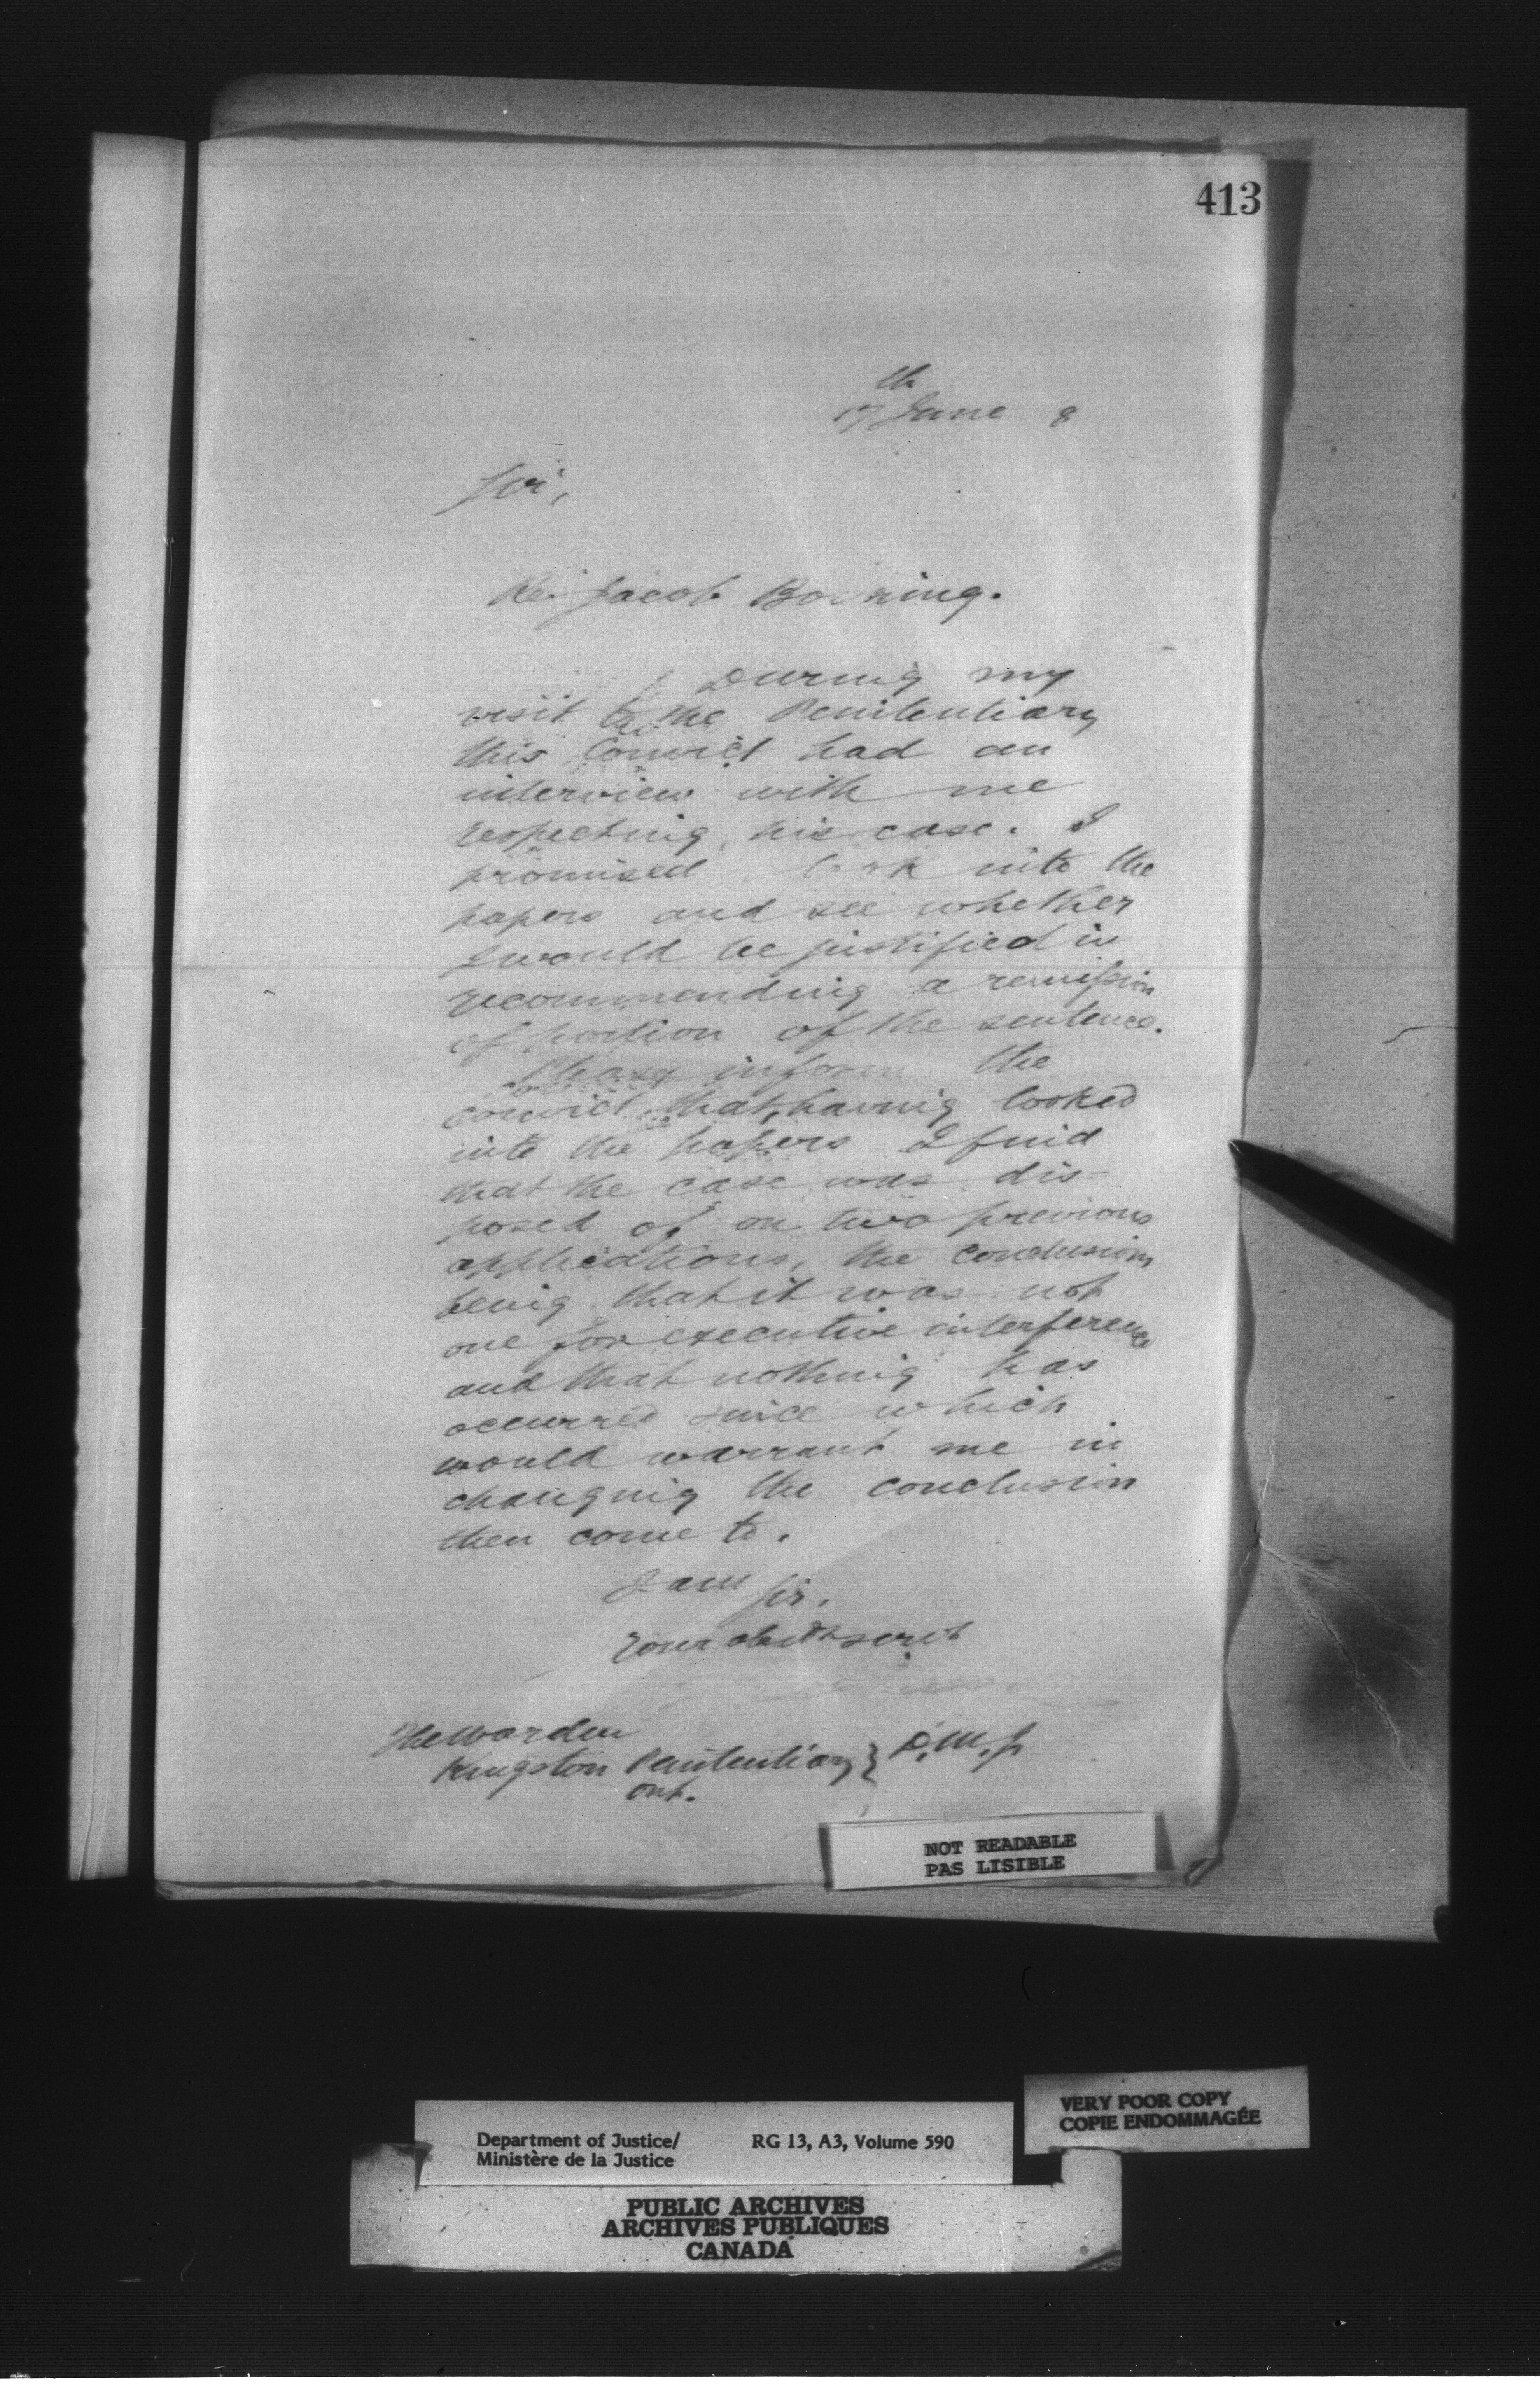 413
17th June 8
Sir,
Re: Jacob
During my
visit to the Penitentiary
this Convict had an
interview with me
respecting his case. I
promised look into the
papers and see whether
I would be justified in
recommending a remission
of portion of the sentence.
Please inform the
convict that, having looked
into the papers I find
that the case was dis-
posed of on two previous
applications, the conclusion
being that it was not
one for executive interference
and that nothing has
occurred since which
would warrant me in
changing the conclusion
then come to.
I am Sir,
Your obedt servt
The Warden
Kingston Penitentiary } D.M.J.
Ont.
NOT READABLE
PAS LISIBLE
VERY POOR COPY
COPIE ENDOMMAGÉE
Department of Justice/ RG 13, A3, Volume 590
Ministère de la Justice
PUBLIC ARCHIVES
ARCHIVES PUBLIQUES
CANADA